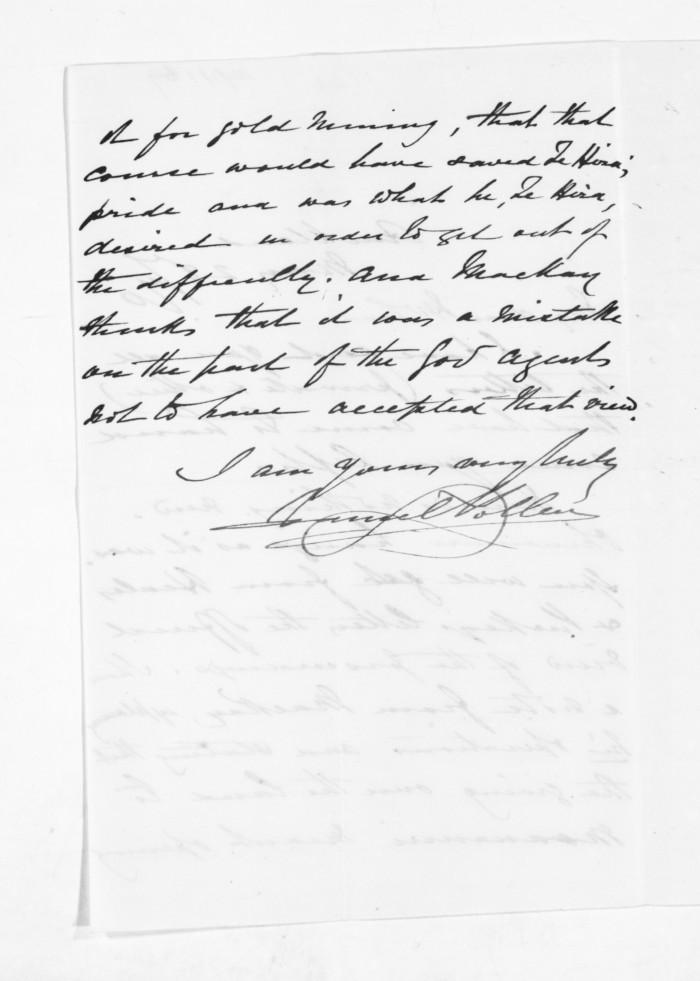 it for gold mining, that that
course would have saved Te Hira's
pride and was what he, Te Hira,
desired in order to get out of
the difficulty. And Mackay
thinks that it was a mistake
on the part of the Govt Agents
not to have accepted that view.
I am yours very truly
Daniel Pollen